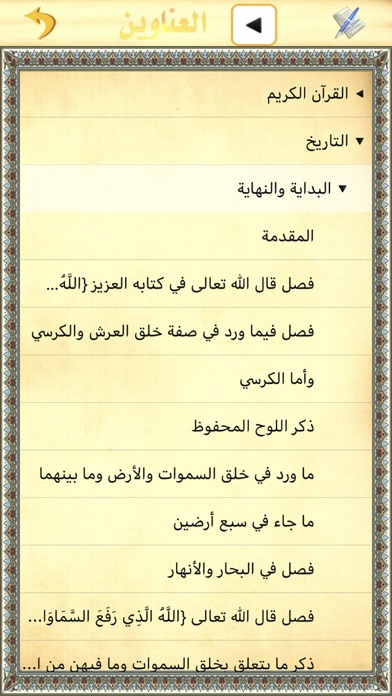 العناوين
القرآن الكريم
التاريخ
البداية والنهاية
المقدمة
فصل قال الله تعالى في كتابه العزيز {اللَّهُ...
فصل فيما ورد في صفة خلق العرش والكرسي
وأما الكرسي
ذكر اللوح المحفوظ
ما ورد في خلق السموات والأرض وما بينهما
ما جاء في سبع أرضين
فصل في البحار والأنهار
فصل قال الله تعالى {اللَّهُ الَّذِي رَفَعَ السَّمَاوَا...
ذكر ما يتعلق بخلق السموات وما فيهن من ا...